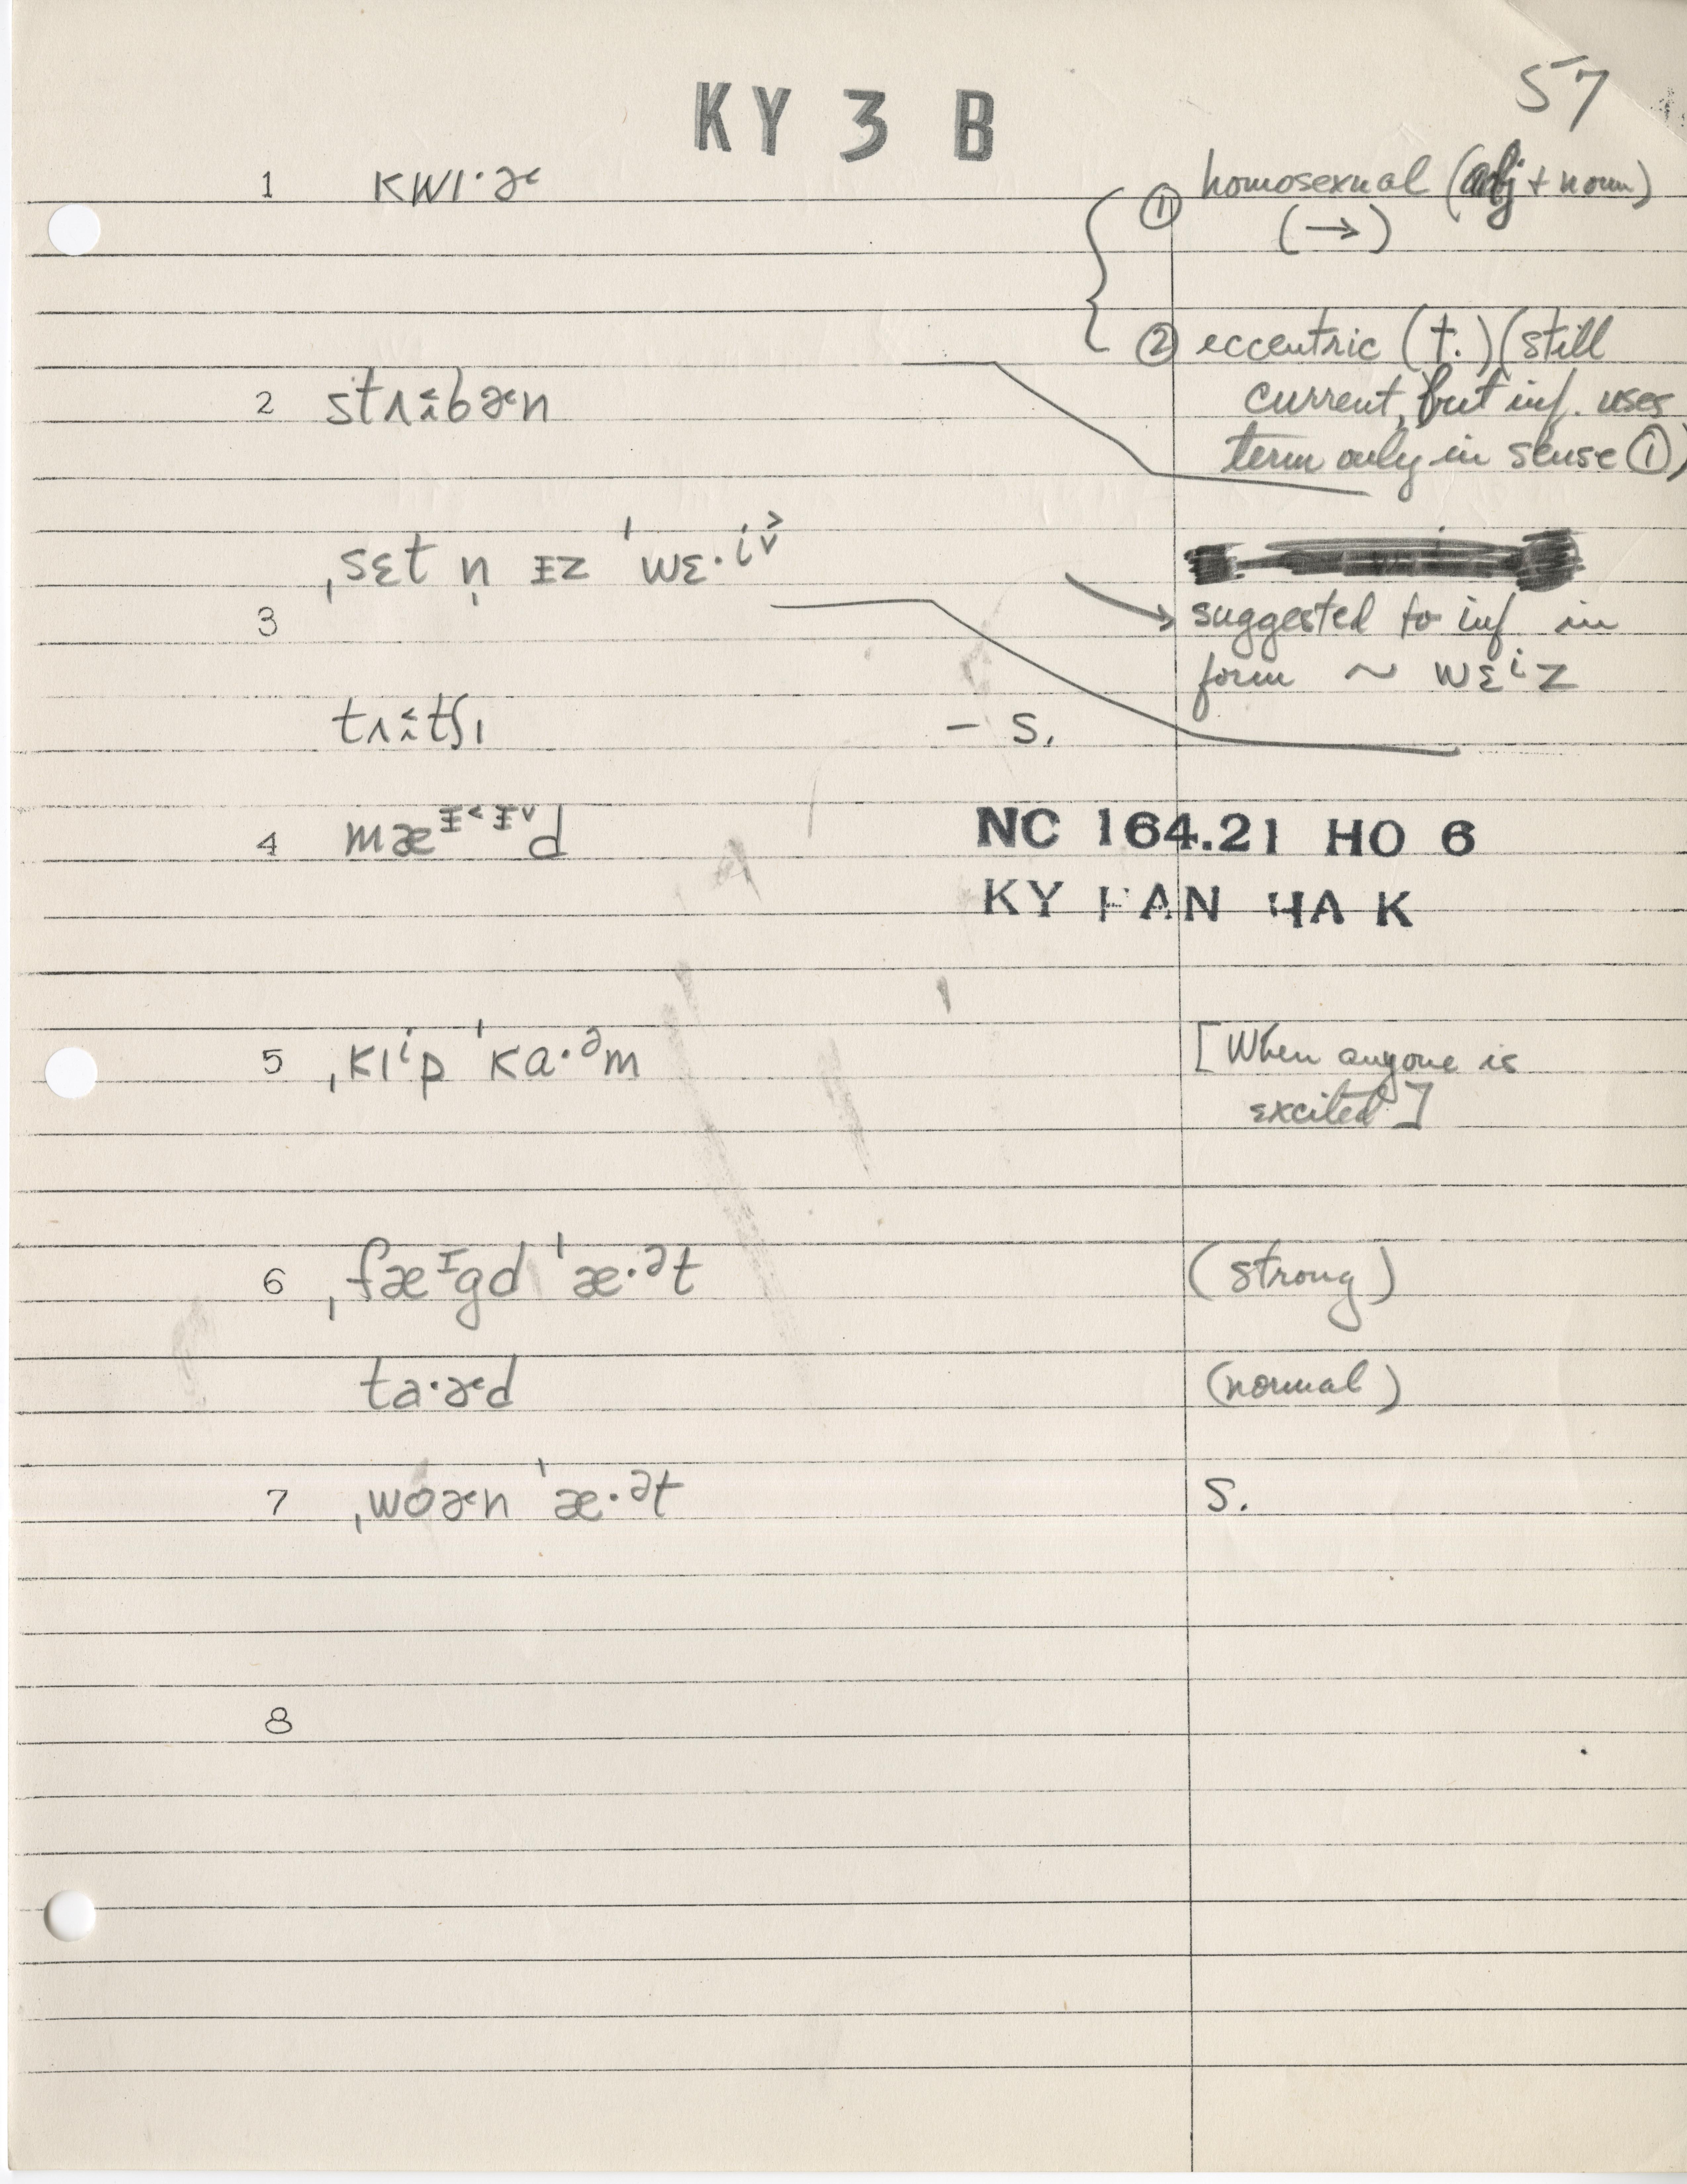 57
KY 3 B
1 kwɪ·ɚ
① homosexual (adj + noun)
(→)
② eccentric (t.) (still
current, but inf. uses
term only in sense ①)
2
ˌsɛt n̩ ɪz ˈwɛ·i
suggested to inf in
form ~ wɛⁱz
3
– s.
4
NC 164.21 HO 6
KY HA K
5 ˌklⁱp ˈka·ᵊm
[When anyone is
excited]
6 ˌfæᶦgd ˈæ·ᵊt
(strong)
ta·ɚd
(normal)
7 ˌwoɚn ˈæ·ᵊt
s.
8